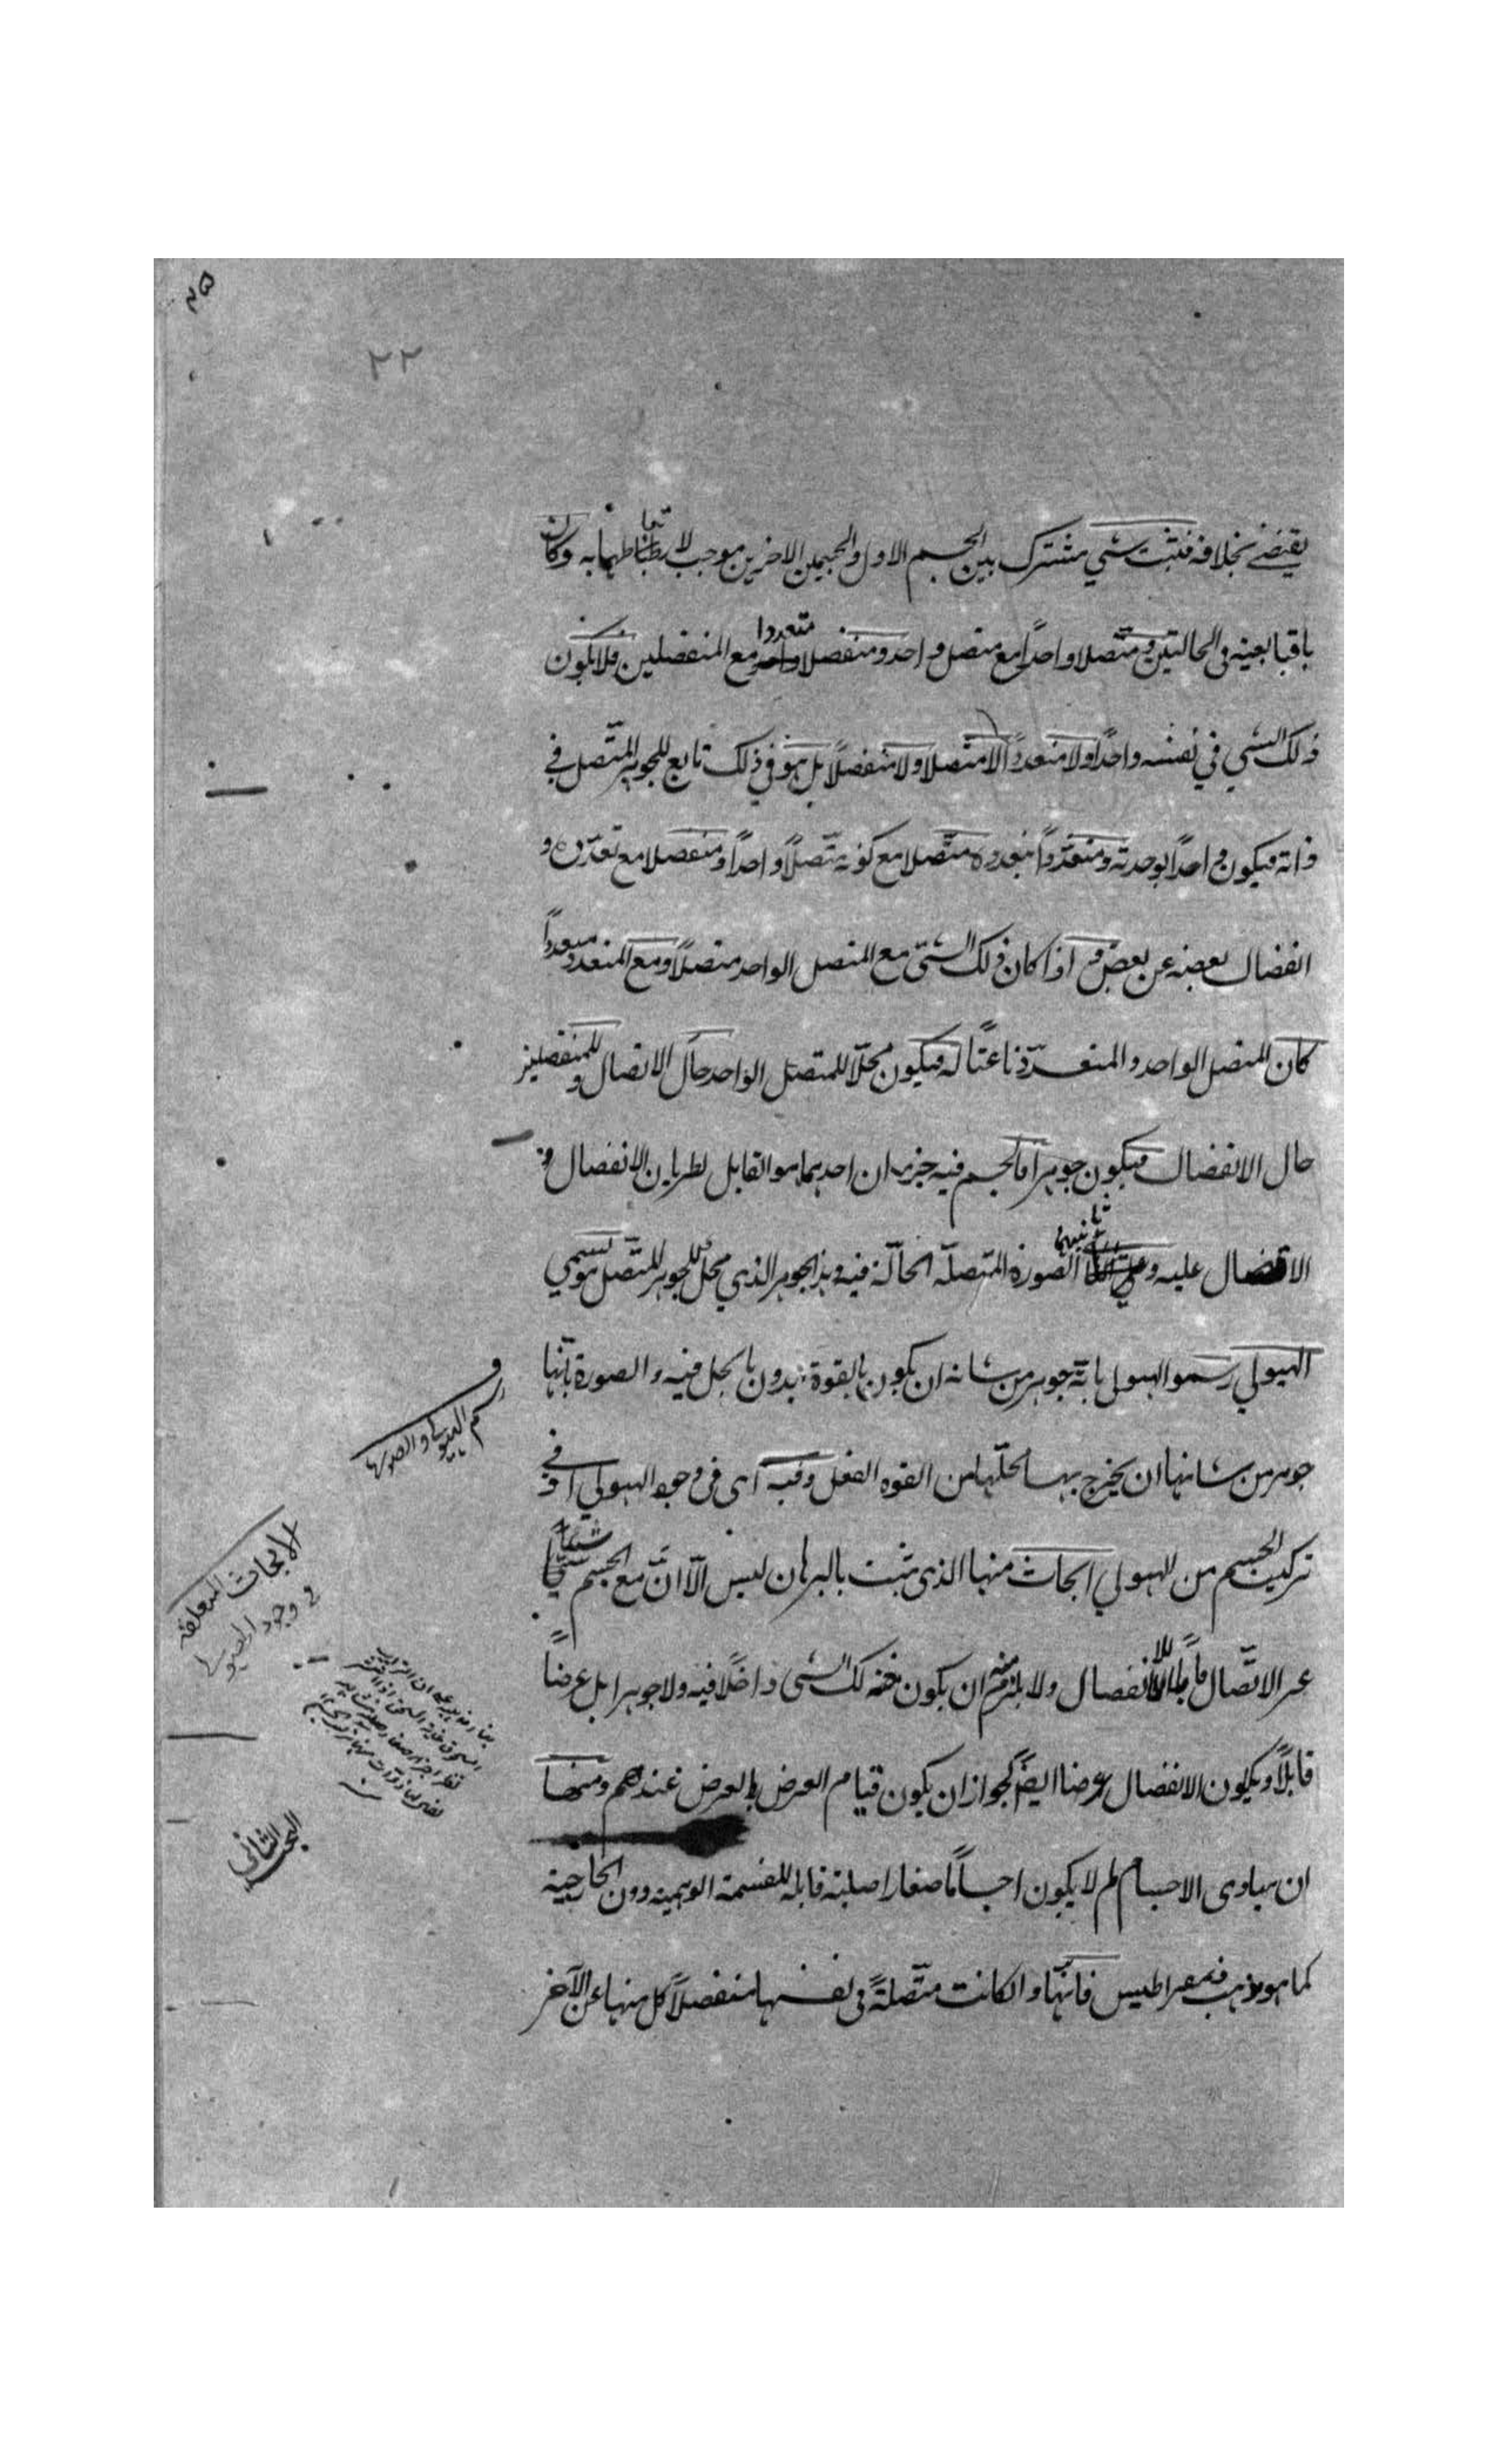 ۲۵
۲۲
يقتضي بخلافه فثبت شي مشترك بين الجسم الاول والجسمين الاخرين موجب لارتباطهما به وكان
باقيا بعينه في الحالتين متصلا واحدًا مع متصل واحد ومنفصلا متعددا مع المنفصلين فلا يكون
ذلك الشي في نفسه واحدًا ولا متعددًا ولا متصلا ولا منفصلًا بل هو في ذلك تابع للجوهر المتّصل في
ذاته فيكون واحدًا بوحدته ومتعدّدًا بتعدده متّصلا مع كونه متّصلًا واحدًا ومنفصلا مع تعدّده و
انفصال بعضه عن بعض واذا كان ذلك الشي مع المتصل الواحد متصلًا ومع المتعدد متعددًا
كان المتصل الواحد والمتعدّد ناعتًا له فيكون محلًّا للمتصل الواحد حال الاتصال وللمنفصلين
حال الانفصال فيكون جوهرا فالجسم فيه جزءان احدهما هو القابل لطريان الانفصال و
الاتصال عليه وثانيهما الصورة المتصلّه الحالّة فيه وهذا الجوهر الذي محل للجوهر المتّصل هو يسمي
الهيولي رسموا الهيولي بانّه جوهر من شانه ان يكون بالقوة بدون ما يحل فيه والصورة بانّها
جوهر من شانها ان يخرج بها محلّها من القوه الفعل وفيه اى في وجود الهيولي او في
تركيب الجسم من الهيولي ابحاث منها الذى ثبت بالبرهان ليس الّا انّ مع الجسم شيئا
غير الاتّصال قابلًا للانفصال ولا يلزم منه ان يكون ذلك الشي داخلًا فيه ولا جوهرا بل عرضاً
قابلًا ويكون الانفصال عرضا ايضًا لجواز ان يكون قيام العرض بالعرض عندهم ومنها
ان مبادى الاجسام لم لا يكون اجسامًا صغارا صلبة قابله للقسمة الوهمية دون الخارجية
كما هو مذهب ذيمقراطيس فانّها وان كانت متّصلةً في نفسها منفصلًا كل منها عن الآخر
رسم الهيولي والصورة
الابحاث المتعلقه
في وجود الهيولي
البحث الثانى